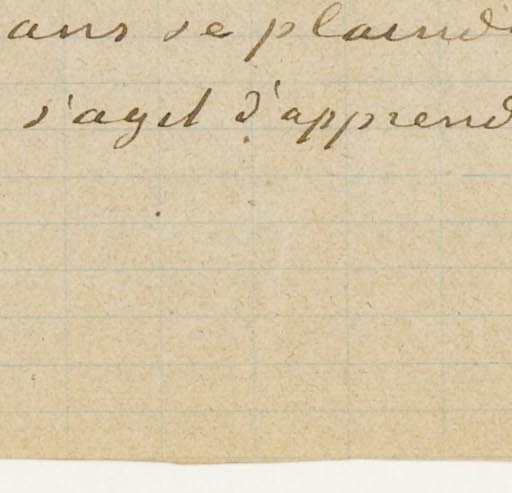 ans se plaind
s'agit d'apprend